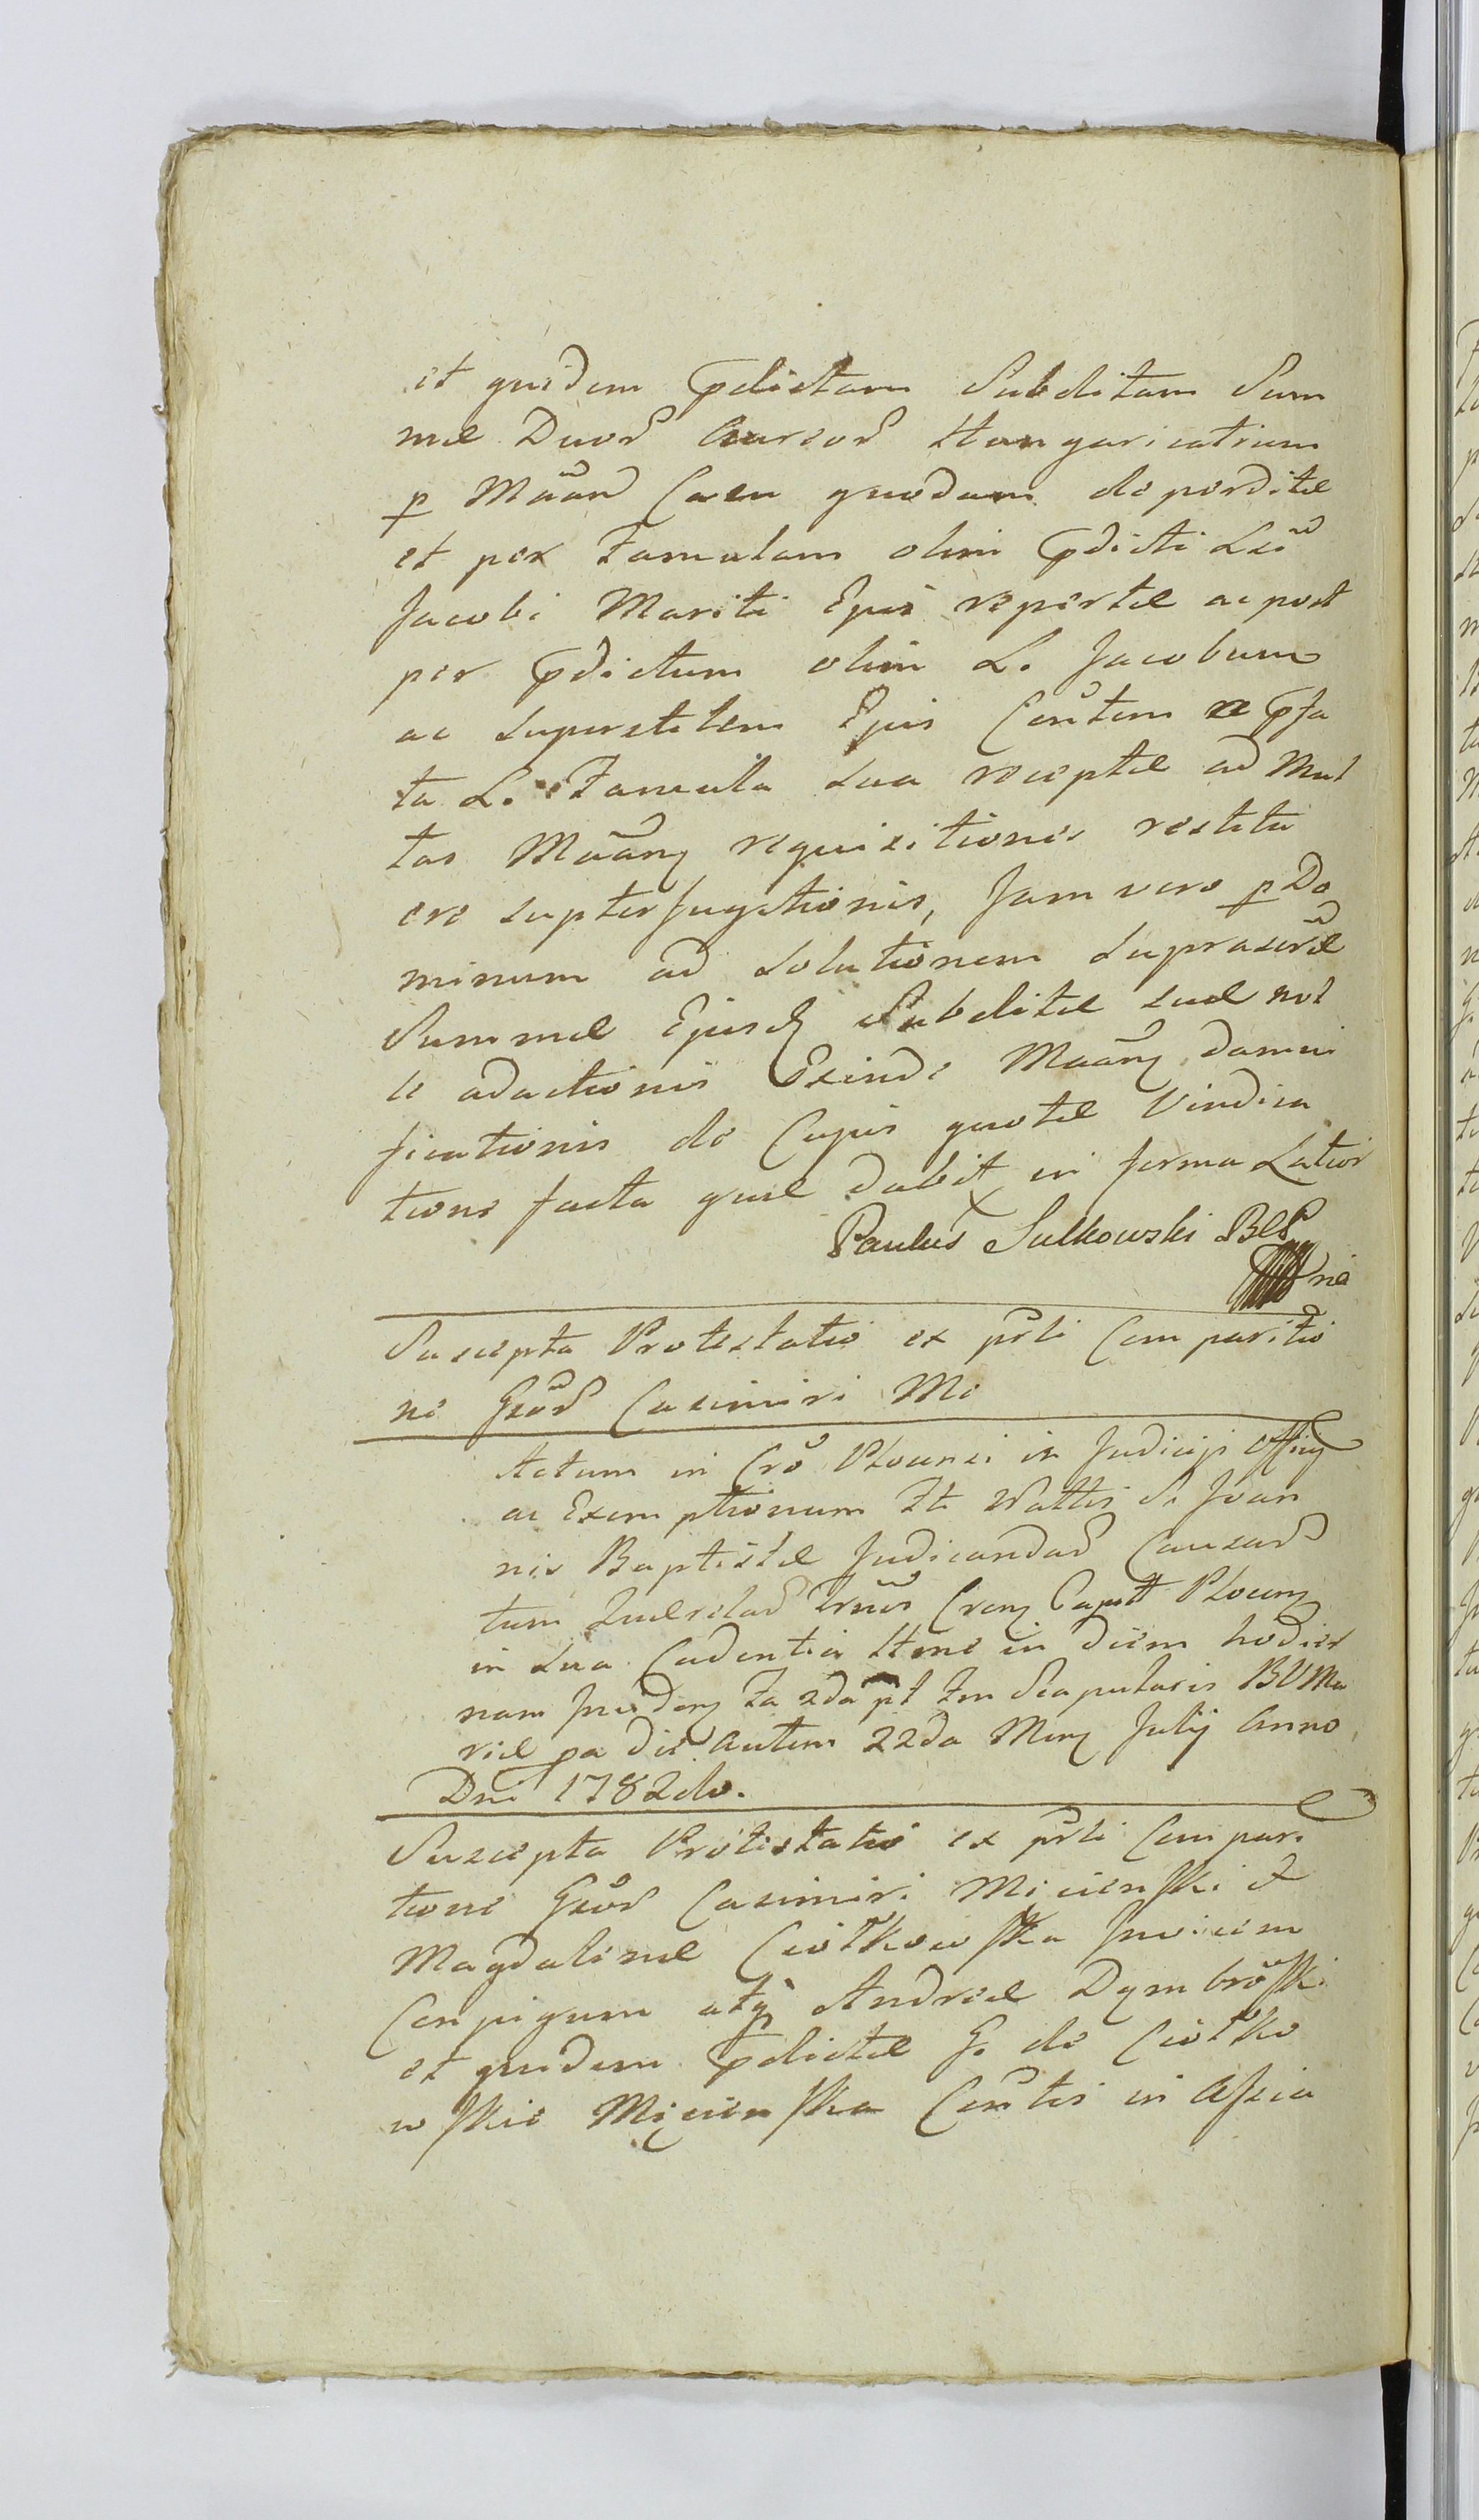 et quidem pdictam Subditam Sum
mæ Duor Aureor Hungaricatium
p Mãan Casu quodam deperditæ
et per Famulam olim pdicti Lũ
Jacobi Mariti Ejus repertæ ac post
per pdictum olim L. Jacobum
ac Superstitem Ejus Cenõtem a pfa
ta L. Famula sua receptæ ad Mul
tas Mãang requisitiones restitu
ere supterfugitionis, Jam vero p Do
minum ad Solutionem suprascræ
Summæ Ejusd Subditæ suæ nol
le adactionis Exinde Mãang damni
ficationis de Cujus quotæ Vindica
tione facta quæ dabit in forma Latior
Paulus Sulkowski BCP
ne
Suscepta Protestatio ex pti Comparitio
ne Gsor Casimiri Mi
Actum in Cro Plocensi in Judicijs Officy
ac Exemptionum Fti Nattis S. Joan
nis Baptistæ Judicandar Causar
tum Querelar Trnis Creng Capitt Ploceng
in sua Cadentia Hnc in diem hodier
nam Incideng Fa 2da pt Fm Scapularis BVMa
riæ pa die autem 22da Meng Julij Anno
Dni 1782do.
Suscepta Protestatio ex pti Compari
tione Gsor Casimiri Micienski et
Magdalenæ Ciołkowska Invicem
Conjugum atq Andreæ Dymbroski
et quidem pdictæ G. de Ciołko
wskie Micienska Contis in Assia